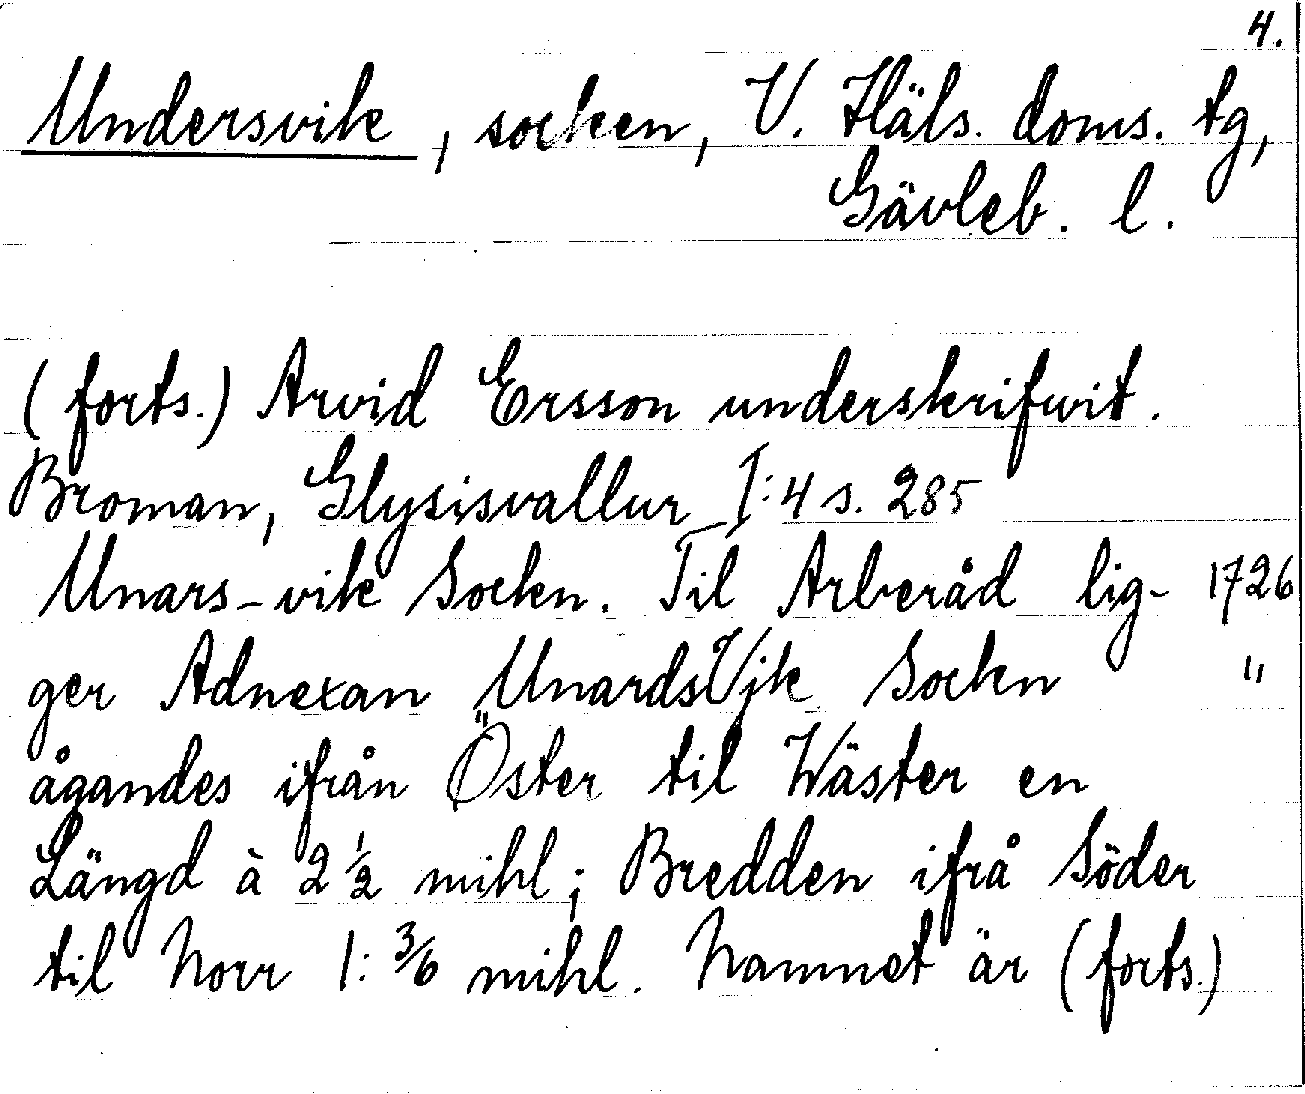 4.
Undersvik, socken, V. Häls. doms. tg,
Gävleb. l.
(forts.) Arvid Ersson underskrifwit.
Broman, Glysisvallur I:4 s. 285
Unars-vik Sockn. Til Arberåd lig- 1726
ger Adnexan UnardsVjk Sockn "
ågandes ifrån Öster til Wäster en
Längd à 2 1/2 mihl; Bredden ifrå Söder
til Norr 1: 3/6 mihl. Namnet är (forts.)